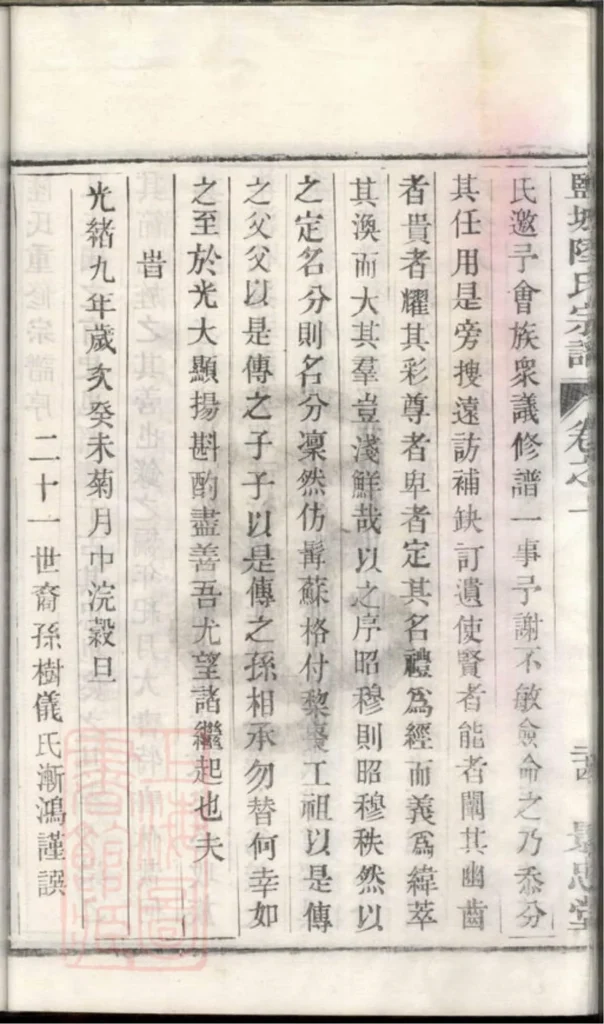 鹽城陸氏宗譜 卷之一 景忠堂
氏邀予會族衆議修譜一事予謝不敏僉命之乃忝分
其任用是旁搜遠訪補缺訂遺使賢者能者闡其幽齒
者貴者耀其彩尊者卑者定其名禮爲經而義爲緯萃
其渙而大其羣豈淺鮮哉以之序昭穆則昭穆秩然以
之定名分則名分凜然仿髴蘇格付黎棗工祖以是傳
之父父以是傳之子子以是傳之孫相承勿替何幸如
之至於光大顯揚斟酌盡善吾尤望諸繼起也夫
旹
光緒九年歲次癸未菊月中浣穀旦
二十一世裔孫樹儀氏漸鴻謹譔